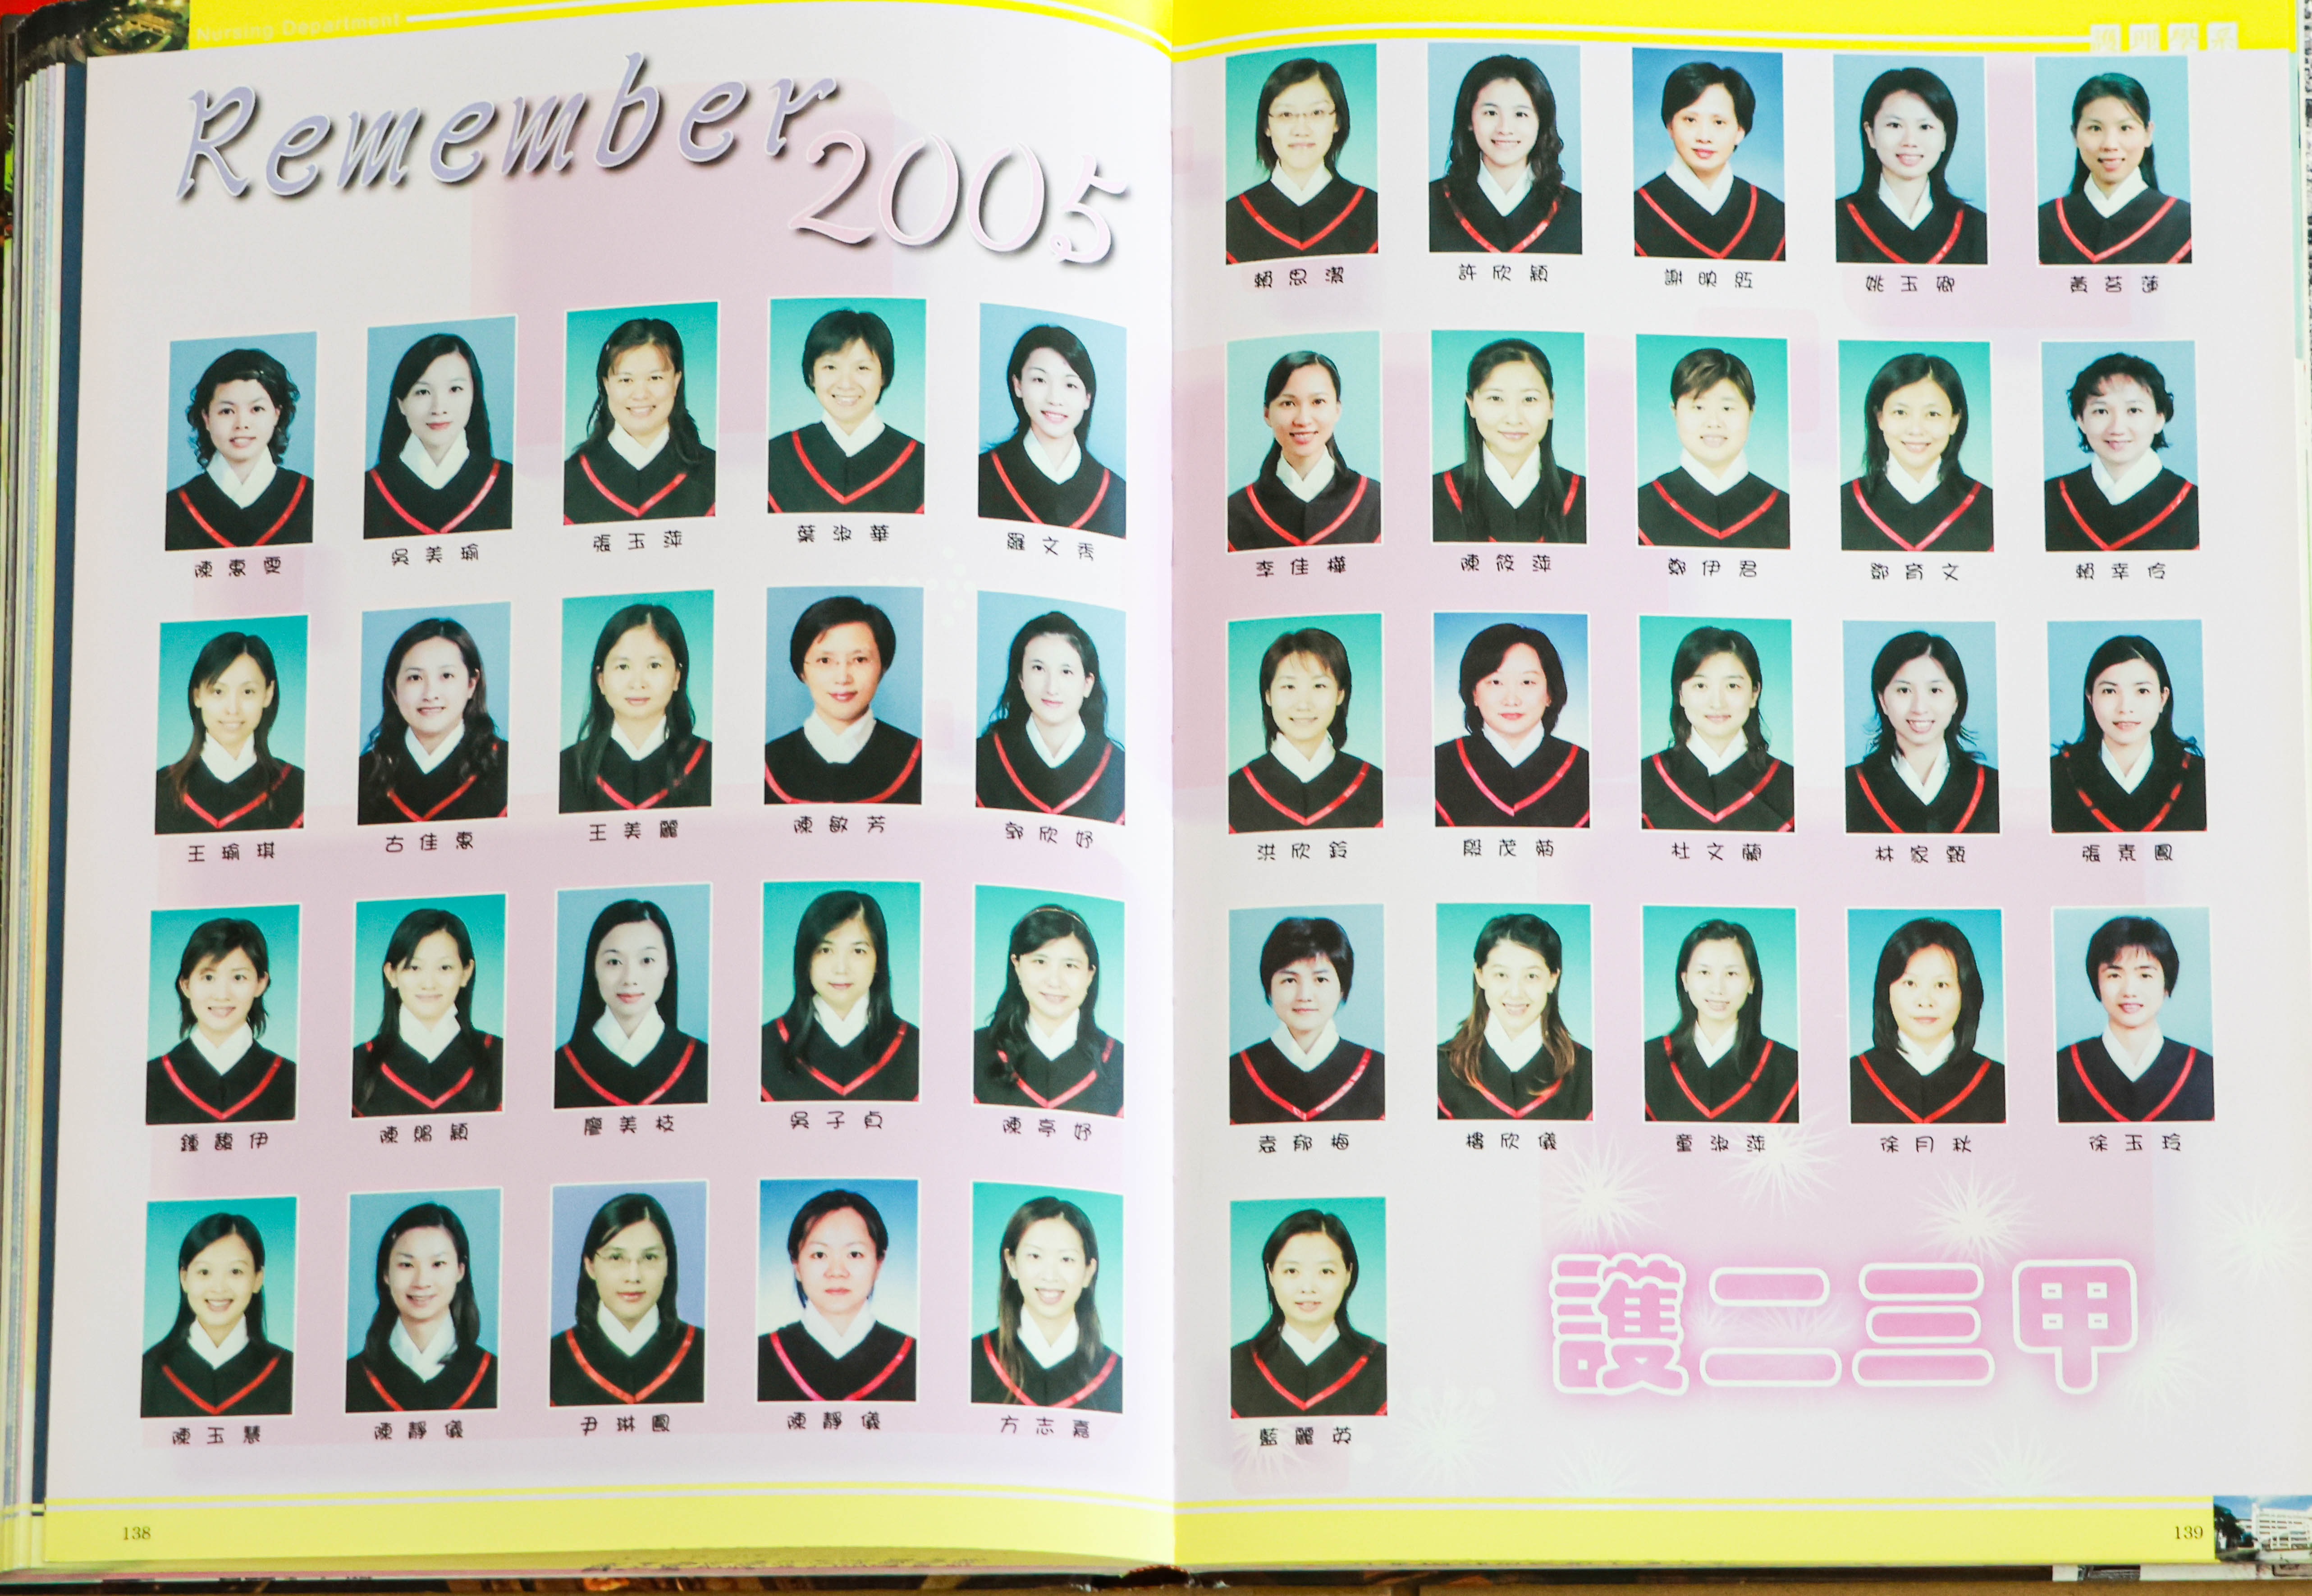 Nursing Department
Remember
2005
陳惠雯 吳美瑜 張玉萍 葉淑華 羅文秀
王瑜琪 古佳惠 王美麗 陳敏芳 郭欣妤
鍾馥伊 陳賜穎 廖美枝 吳子貞 陳亭妤
陳玉慧 陳靜儀 尹琳鳳 陳靜儀 方志嘉
138
護理學系
賴思潔 許欣穎 謝映 姚玉卿 黃苔蓮
李佳樺 陳筱萍 鄭伊君 鄧育文 賴幸伶
洪欣鈴 殷茂菊 杜文蘭 林家甄 張素鳳
袁郁梅 楊欣儀 童淑萍 徐月秋 徐玉玲
藍麗英
護二三甲
139